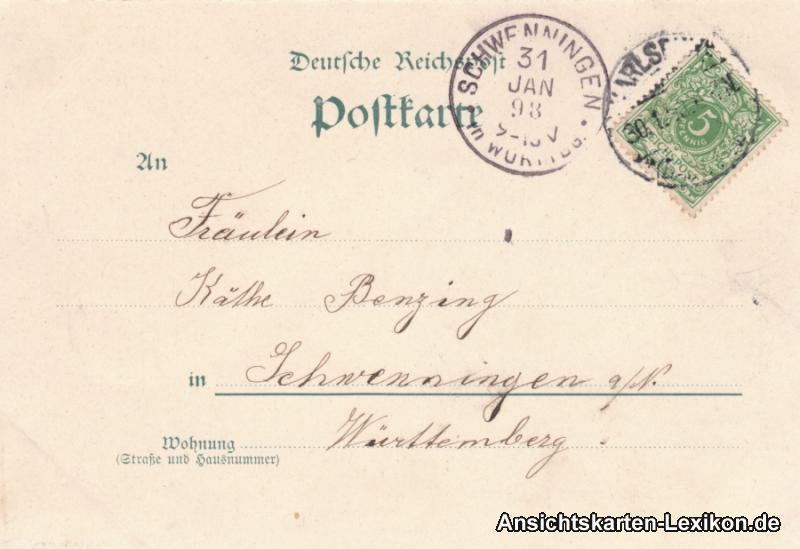 Deutsche Reichspost
Postkarte
SCHWENNINGEN
31
JAN
98
in WÜRTTBG.
5
PFENNIG
REICHSPOST
An
Fräulein
Käthe Benzing
in Schwenningen a/N.
Württemberg.
Wohnung
(Straße und Hausnummer)
Ansichtskarten-Lexikon.de